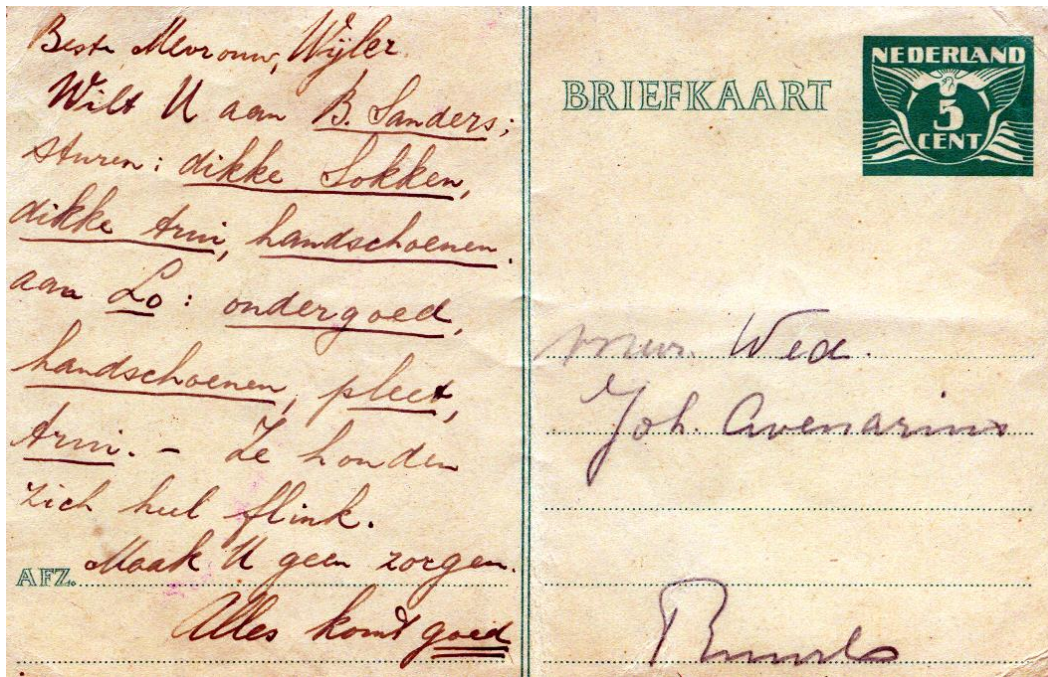 Beste Mevrouw, Wijler.
Wilt U aan B. Sanders;
sturen: dikke Sokken,
dikke trui, handschoenen.
aan Lo: ondergoed,
handschoenen, pleet,
trui. - Ze houden
zich heel flink.
Maak U geen zorgen.
Alles komt goed
AFZ.
BRIEFKAART
NEDERLAND
5
CENT
mevr. Wed.
Joh. Avenarius
Ruurlo